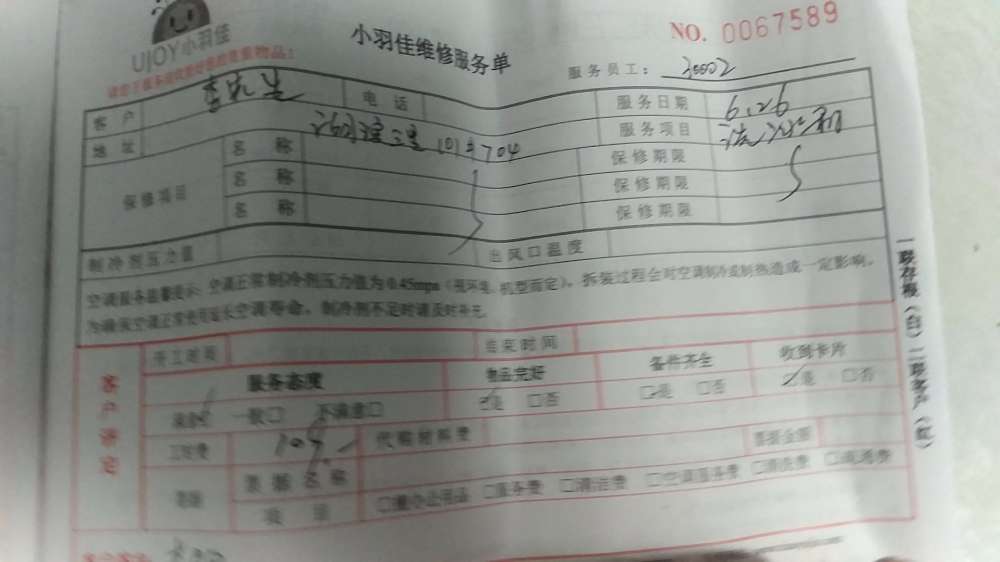 UJOY小羽佳
小羽佳维修服务单
NO. 0067589
服务员工：
客户 电话 服务日期 6.26
地址 101 704 服务项目 洗
保修项目 名称 保修期限
名称 保修期限
名称 保修期限
制冷剂压力值 出风口温度
空调服务温馨提示：空调正常制冷剂压力值为0.45mpa（视环境、机型而定）。拆装过程会对空调制冷或制热造成一定影响。
为确保空调正常使用延长空调寿命，制冷剂不足时请及时补充。
客户评定
开工时间 结束时间
服务态度 物品完好 备件齐全 收到卡片
满意 一般□ 不满意□ 是 □否 □是 □否 是 □否
工时费 代购材料费 票据金额
票据 票据名称
项目 □办公用品 □服务费 □清洁费 □空调服务费 □清洗费
一联存根（白）二联客户（红）